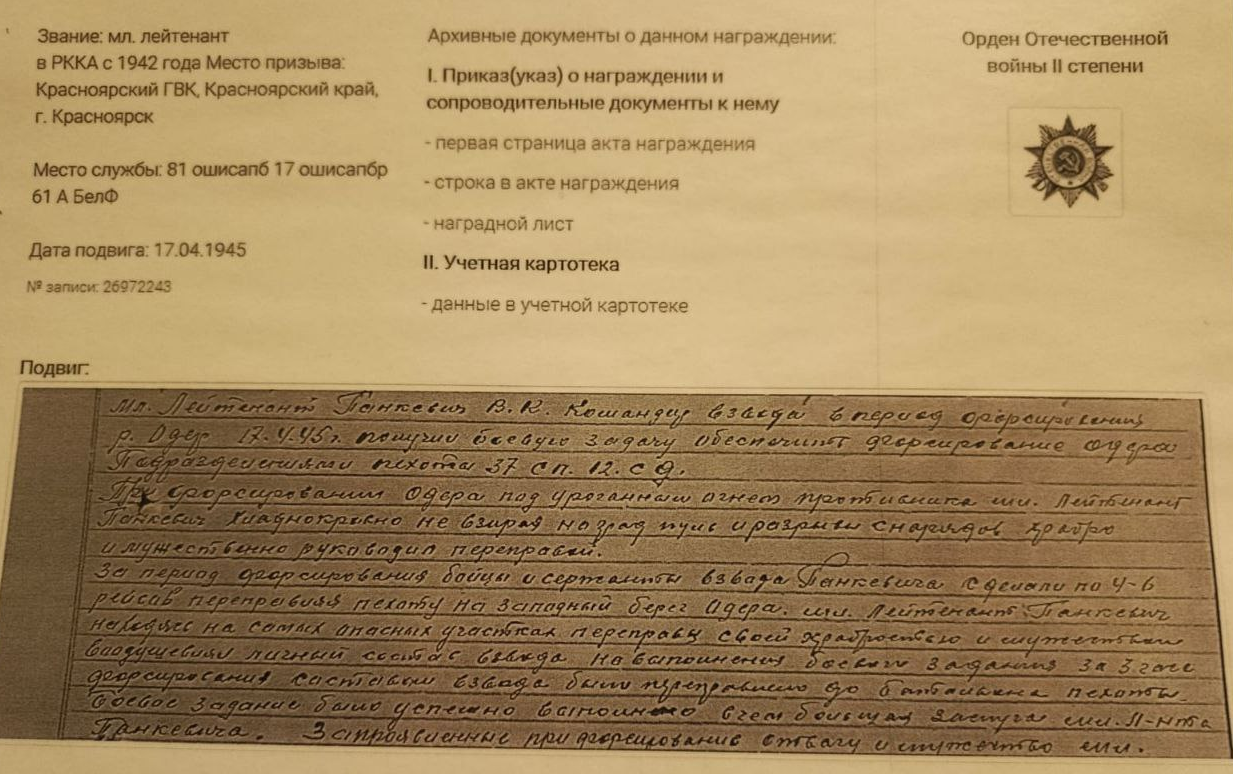 Звание: мл. лейтенант
в РККА с 1942 года Место призыва:
Красноярский ГВК, Красноярский край,
г. Красноярск
Место службы: 81 ошисапб 17 ошисапбр
61 А БелФ
Дата подвига: 17.04.1945
№ записи: 26972243
Архивные документы о данном награждении:
I. Приказ(указ) о награждении и
сопроводительные документы к нему
- первая страница акта награждения
- строка в акте награждения
- наградной лист
II. Учетная картотека
- данные в учетной картотеке
Орден Отечественной
войны II степени
Подвиг:
Мл. Лейтенант Панкевич В.К. Командир взвода в период форсирования
р. Одер 17.4.45г. получил боевую задачу обеспечить форсирование Одера
Подразделениями пехоты 37 сп. 12. сд.
При форсировании Одера под ураганным огнем противника мл. Лейтенант
Панкевич не взирая на град пуль и разрывы снарядов храбро
и мужественно руководил переправой.
За период форсирования бойцы и сержанты взвода Панкевича сделали по 4-6
рейсов переправляя пехоту на западный берег Одера. мл. Лейтенант Панкевич
находясь на самых опасных участках переправы своей храбростью и мужеством
воодушевлял личный состав взвода на выполнения боевого задания за 3 часа
форсирования составом взвода было переправлено до батальона пехоты.
Боевое задание было успешно выполнено в чем большая заслуга мл. Л-нта
Панкевича. За проявленные при форсирование отвагу и мужество мл.